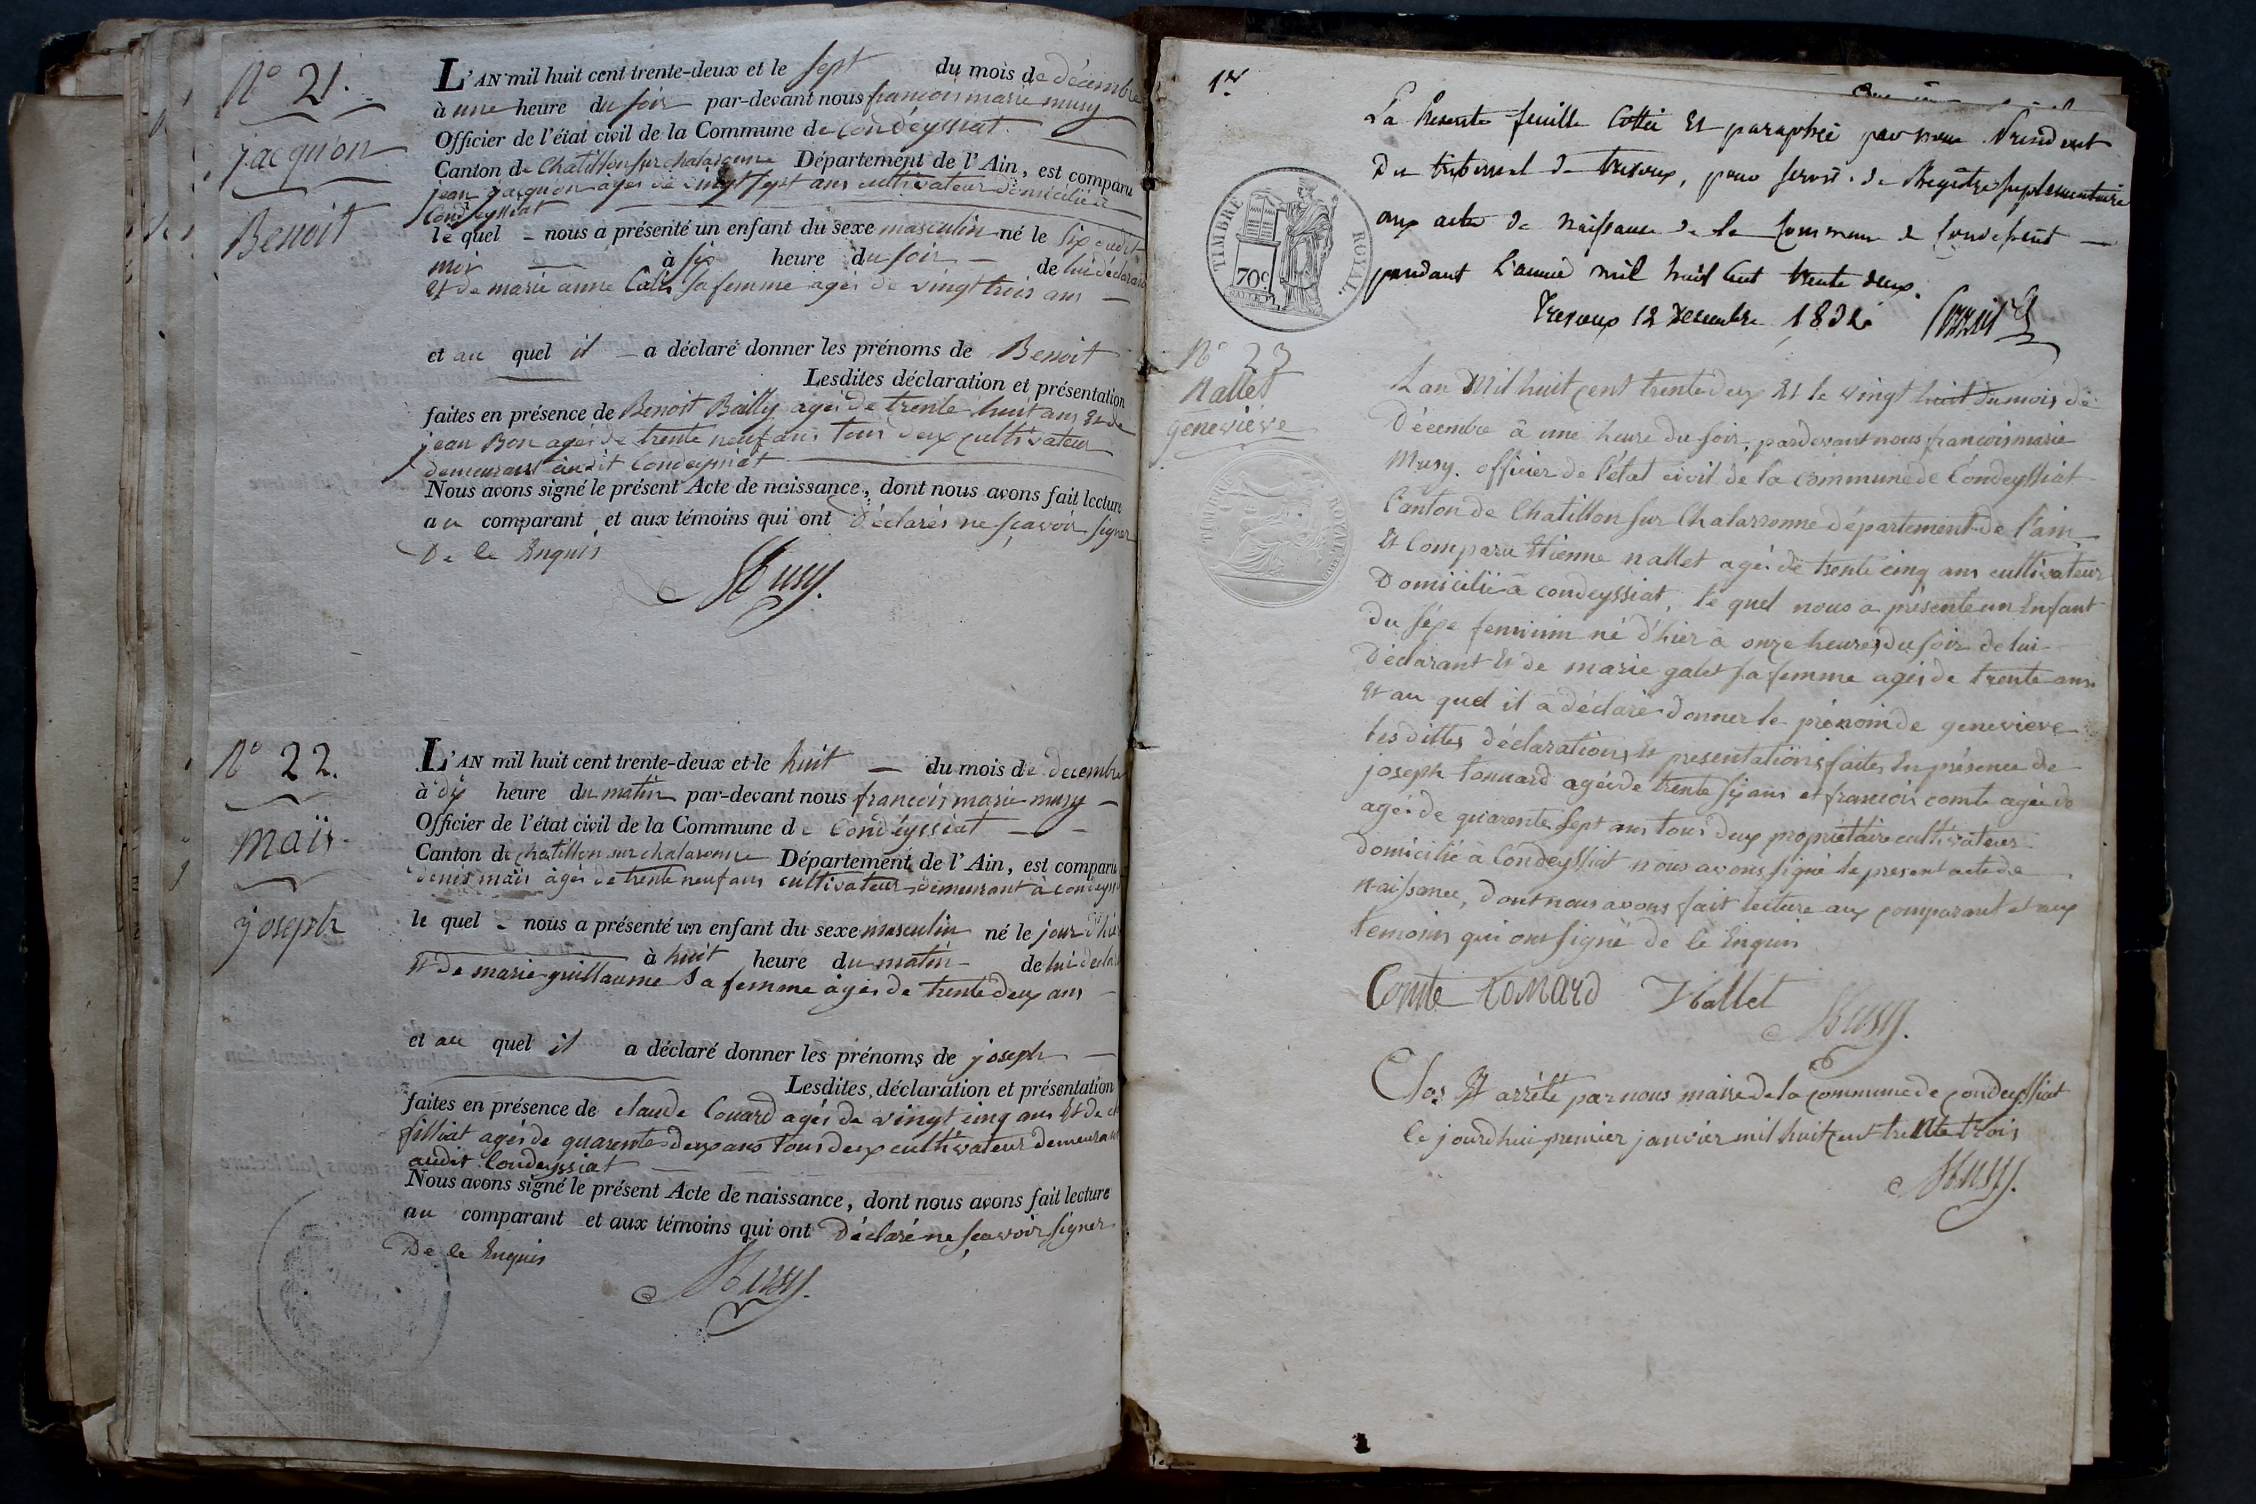 N° 21.
jacquon
Benoit
L'AN mil huit cent trente-deux et le sept du mois de décembre
à une heure du soir par-devant nous francois marie musy
Officier de l'état civil de la Commune de Condeyssiat
Canton de Chatillon sur chalaronne Département de l'Ain, est comparu
jean jacquon agés de vingt sept ans cultivateur domicilié à
Condeyssiat
le quel - nous a présenté un enfant du sexe masculin né le six dudit
mois à six heure du soir - de lui déclarant
et de marie anne sa femme agés de vingt trois ans -
et au quel il - a déclaré donner les prénoms de Benoit
Lesdites déclaration et présentation
faites en présence de Benoit Bailly agés de trente huit ans et de
jean Bon agés de trente neuf ans tous deux cultivateur
demeurant audit Condeyssiat
Nous avons signé le présent Acte de naissance, dont nous avons fait lecture
au comparant et aux témoins qui ont déclarés ne sçavoir signer
De le Enquis
Musy.
N° 22.
maïs
joseph
L'AN mil huit cent trente-deux et le huit - du mois de decembre
à dix heure du matin par-devant nous francois marie musy -
Officier de l'état civil de la Commune de Condéyssiat - -
Canton de chatillon sur chalaronne Département de l'Ain, est comparu
denis maïs âgés de trente neuf ans cultivateur demeurant à condeyss
le quel - nous a présenté un enfant du sexe masculin né le jour d'hier
à huit heure du matin - de lui decla
Et de marie guillaume sa femme âgés de trente deux ans -
et au quel il a déclaré donner les prénoms de joseph -
Lesdites, déclaration et présentation
faites en présence de claude Couard agés de vingt cinq ans Et de
filliat agés de quarente deux ans tous deux cultivateur demeurant
audit Condeyssiat
Nous avons signé le présent Acte de naissance, dont nous avons fait lecture
au comparant et aux témoins qui ont déclaré ne sçavoir signer
De le Enquis
Musy.
1er
La Presente feuille Cottée Et paraphée par nous President
Du tribunal de trevoux, pour servir de Registre suplementaire
aux acte de Naissance de la Commune de Condessiat -
pendant L'année mil huit Cent trente deux.
Trevoux 12 Decembre 1832
TIMBRE ROYAL.
70c.
N° 23
Nallet
geneviève
TIMBRE ROYAL
L'an Mil huit cent trente deux Et le vingt huit du mois de
Décembre à une heure du soir, pardevant nous francois marie
Musy. officier de l'état civil de la commune de Condeyssiat
Canton de Chatillon sur Chalaronne département de l'ain
Et Comparu Etienne nallet agés de trente cinq ans cultivateur
Domicilié à condeyssiat, le quel nous a présenté un Enfant
du séxe feminin né d'hier à onze heures du soir de lui
Déclarant Et de marie galet sa femme agés de trente ans
Et au quel il a déclaré donner le prénom de genevieve
les dittes déclarations Et presentations faites En présence de
joseph tonnard agés de trente six ans et francois comte agés de
agés de quarente sept ans tous deux propriétaire cultivateur
domicilié à Condeyssiat nous avons signé le present acte de
naissance, dont nous avons fait lecture aux comparant et aux
temoins qui ont signé de le Enquis
Comte tonard Nallet
Musy.
Clos Et arrêté par nous maire de la commune de condeyssiat
le jourdhui premier janvier mil huit cent trente trois
Musy.